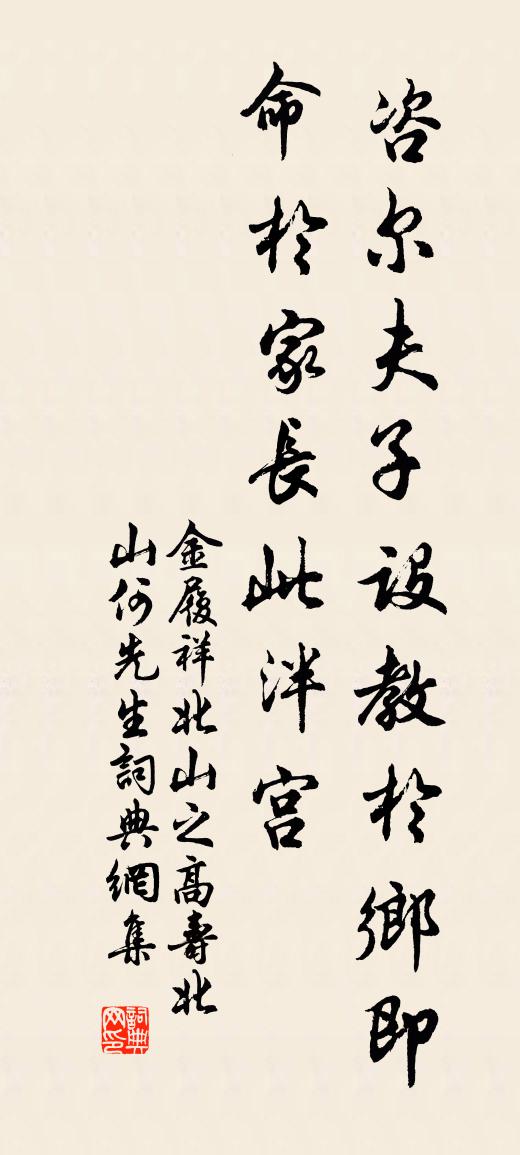 咨尔夫子設教於鄉即
命於家長此泮宫
金履祥北山之高壽北
山何先生詞典網集
詞典网印